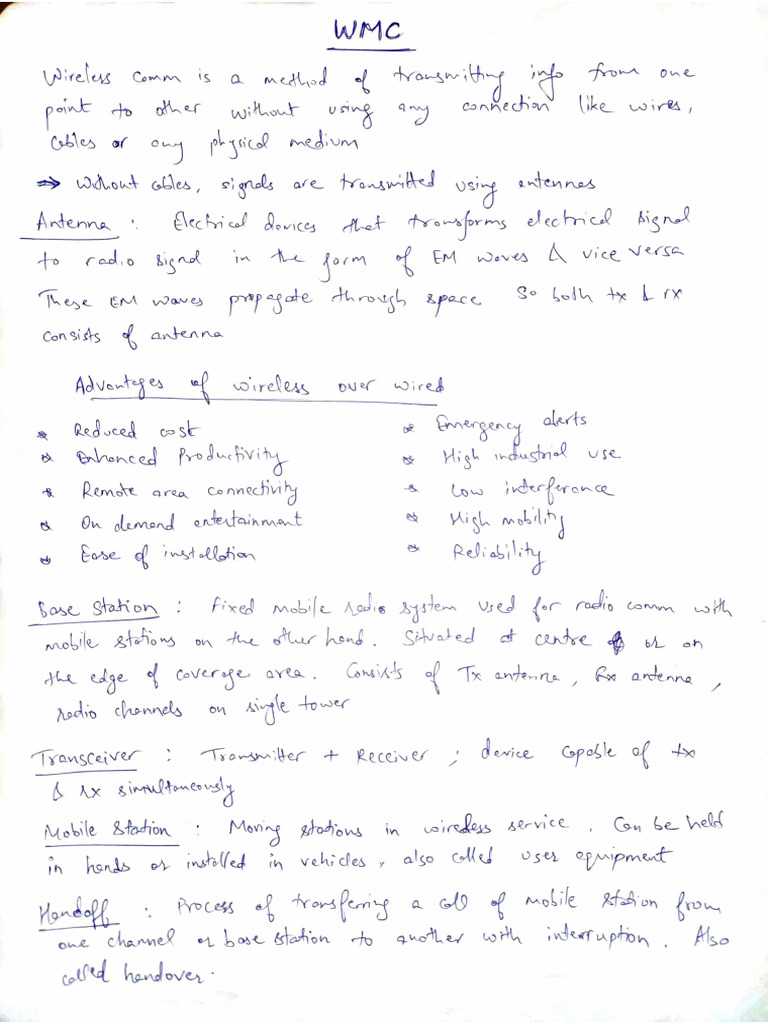 WMC
Wireless comm is a method of transmitting info from one
point to other without using any connection like wires,
cables or any physical medium
⇒ Without cables, signals are transmitted using antennas
Antenna : Electrical devices that transforms electrical signal
to radio signal in the form of EM waves & vice versa
These EM waves propagate through space. So both tx & rx
consists of antenna
Advantages of wireless over wired
* Reduced cost
* Enhanced Productivity
* Remote area connectivity
* On demand entertainment
* Ease of installation
* Emergency alerts
* High industrial use
* Low interference
* High mobility
* Reliability
Base Station : Fixed mobile radio system used for radio comm with
mobile stations on the other hand. Situated at centre or on
the edge of coverage area. Consists of Tx antenna, Rx antenna,
radio channels on single tower
Transceiver : Transmitter + Receiver ; device capable of tx
& rx simultaneously
Mobile Station : Moving stations in wireless service. Can be held
in hands or installed in vehicles, also called user equipment
Handoff : Process of transferring a call of mobile station from
one channel or base station to another with interruption. Also
called handover.